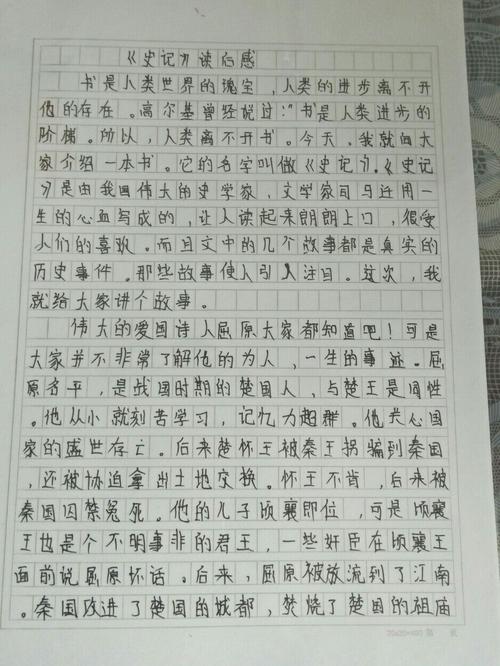 《史记》读后感
书是人类世界的瑰宝，人类的进步离不开
他的存在。高尔基曾经说过："书是人类进步的
阶梯。所以，人类离不开书。今天，我就向大
家介绍一本书。它的名字叫做《史记》.《史记
》是由我国伟大的史学家，文学家司马迁用一
生的心血写成的，让人读起来朗朗上口，很受
人们的喜欢。而且文中的几个故事都是真实的
历史事件。那些故事使人引人注目。这次，我
就给大家讲个故事。
伟大的爱国诗人屈原大家都知道吧！可是
大家并不非常了解他的为人，一生的事迹。屈
原名平，是战国时期的楚国人，与楚王是同性
。他从小就刻苦学习，记忆力超群。他关心国
家的盛世存亡。后来楚怀王被秦王拐骗到秦国
，还被协迫拿出土地交换。怀王不肯，后来被
秦国囚禁冤死。他的儿子顷襄即位，可是顷襄
王也是个不明事非的君王，一些奸臣在顷襄王
面前说屈原坏话。后来，屈原被放流到了江南
。秦国改进了楚国的城都，焚烧了楚国的祖庙
20×20=400 第 页